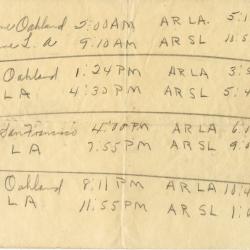 Oakland 2:00 AM AR LA. 5:1
L. A 9:10 AM AR SL 10:5
Oakland 1:24 PM AR LA 3:5
LA 4:30 PM AR SL 5:4
San Francisco 4:00 PM AR LA 6:
LA 7:55 PM AR SL 9:0
Oakland 8:11 PM AR LA 10:4
LA 11:55 PM AR SL 1: